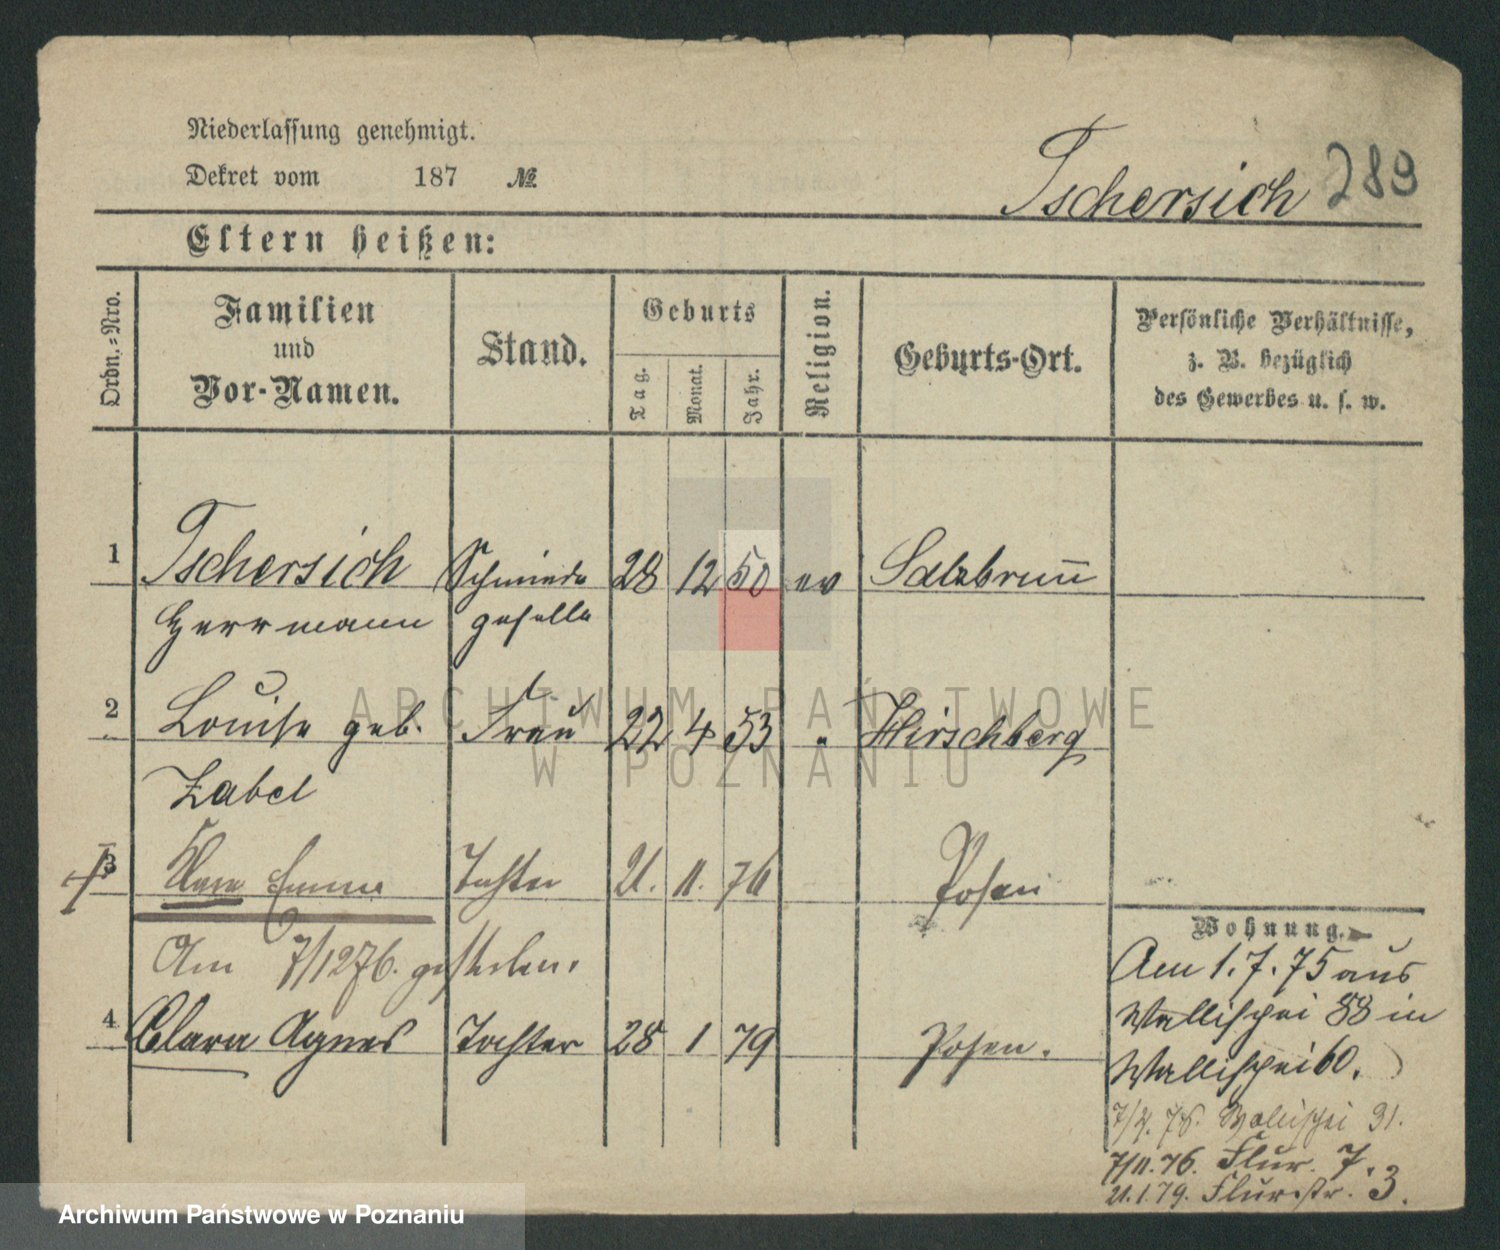 Niederlassung genehmigt.
Dekret vom 187 №
Tschersich 289
Eltern heißen:
Ordn.-Nro.
Familien und Vor-Namen.
Stand.
Geburts
Tag.
Monat.
Jahr.
Religion.
Geburts-Ort.
Persönliche Verhältnisse,
z. B. bezüglich
des Gewerbes u. s. w.
1 Tschersich Schmiede 28 12 50 ev Salzbrunn
Herrmann geselle
2 Louise geb. Frau 22 4 53 " Hirschberg
Zabel
3 Clara Emma Tochter 21. 11. 76 Posen
Am 7/12 76. gestorben.
4 Clara Agnes Tochter 28 1 79 Posen.
Wohnung.
Am 1. 7. 75 aus
Wallischei 88 in
Wallischei 60.
Wallischei 31.
7/11. 76. Flur. 7.
21. 1. 79. Flurstr. 3.
ARCHIWUM PAŃSTWOWE
W POZNANIU
Archiwum Państwowe w Poznaniu